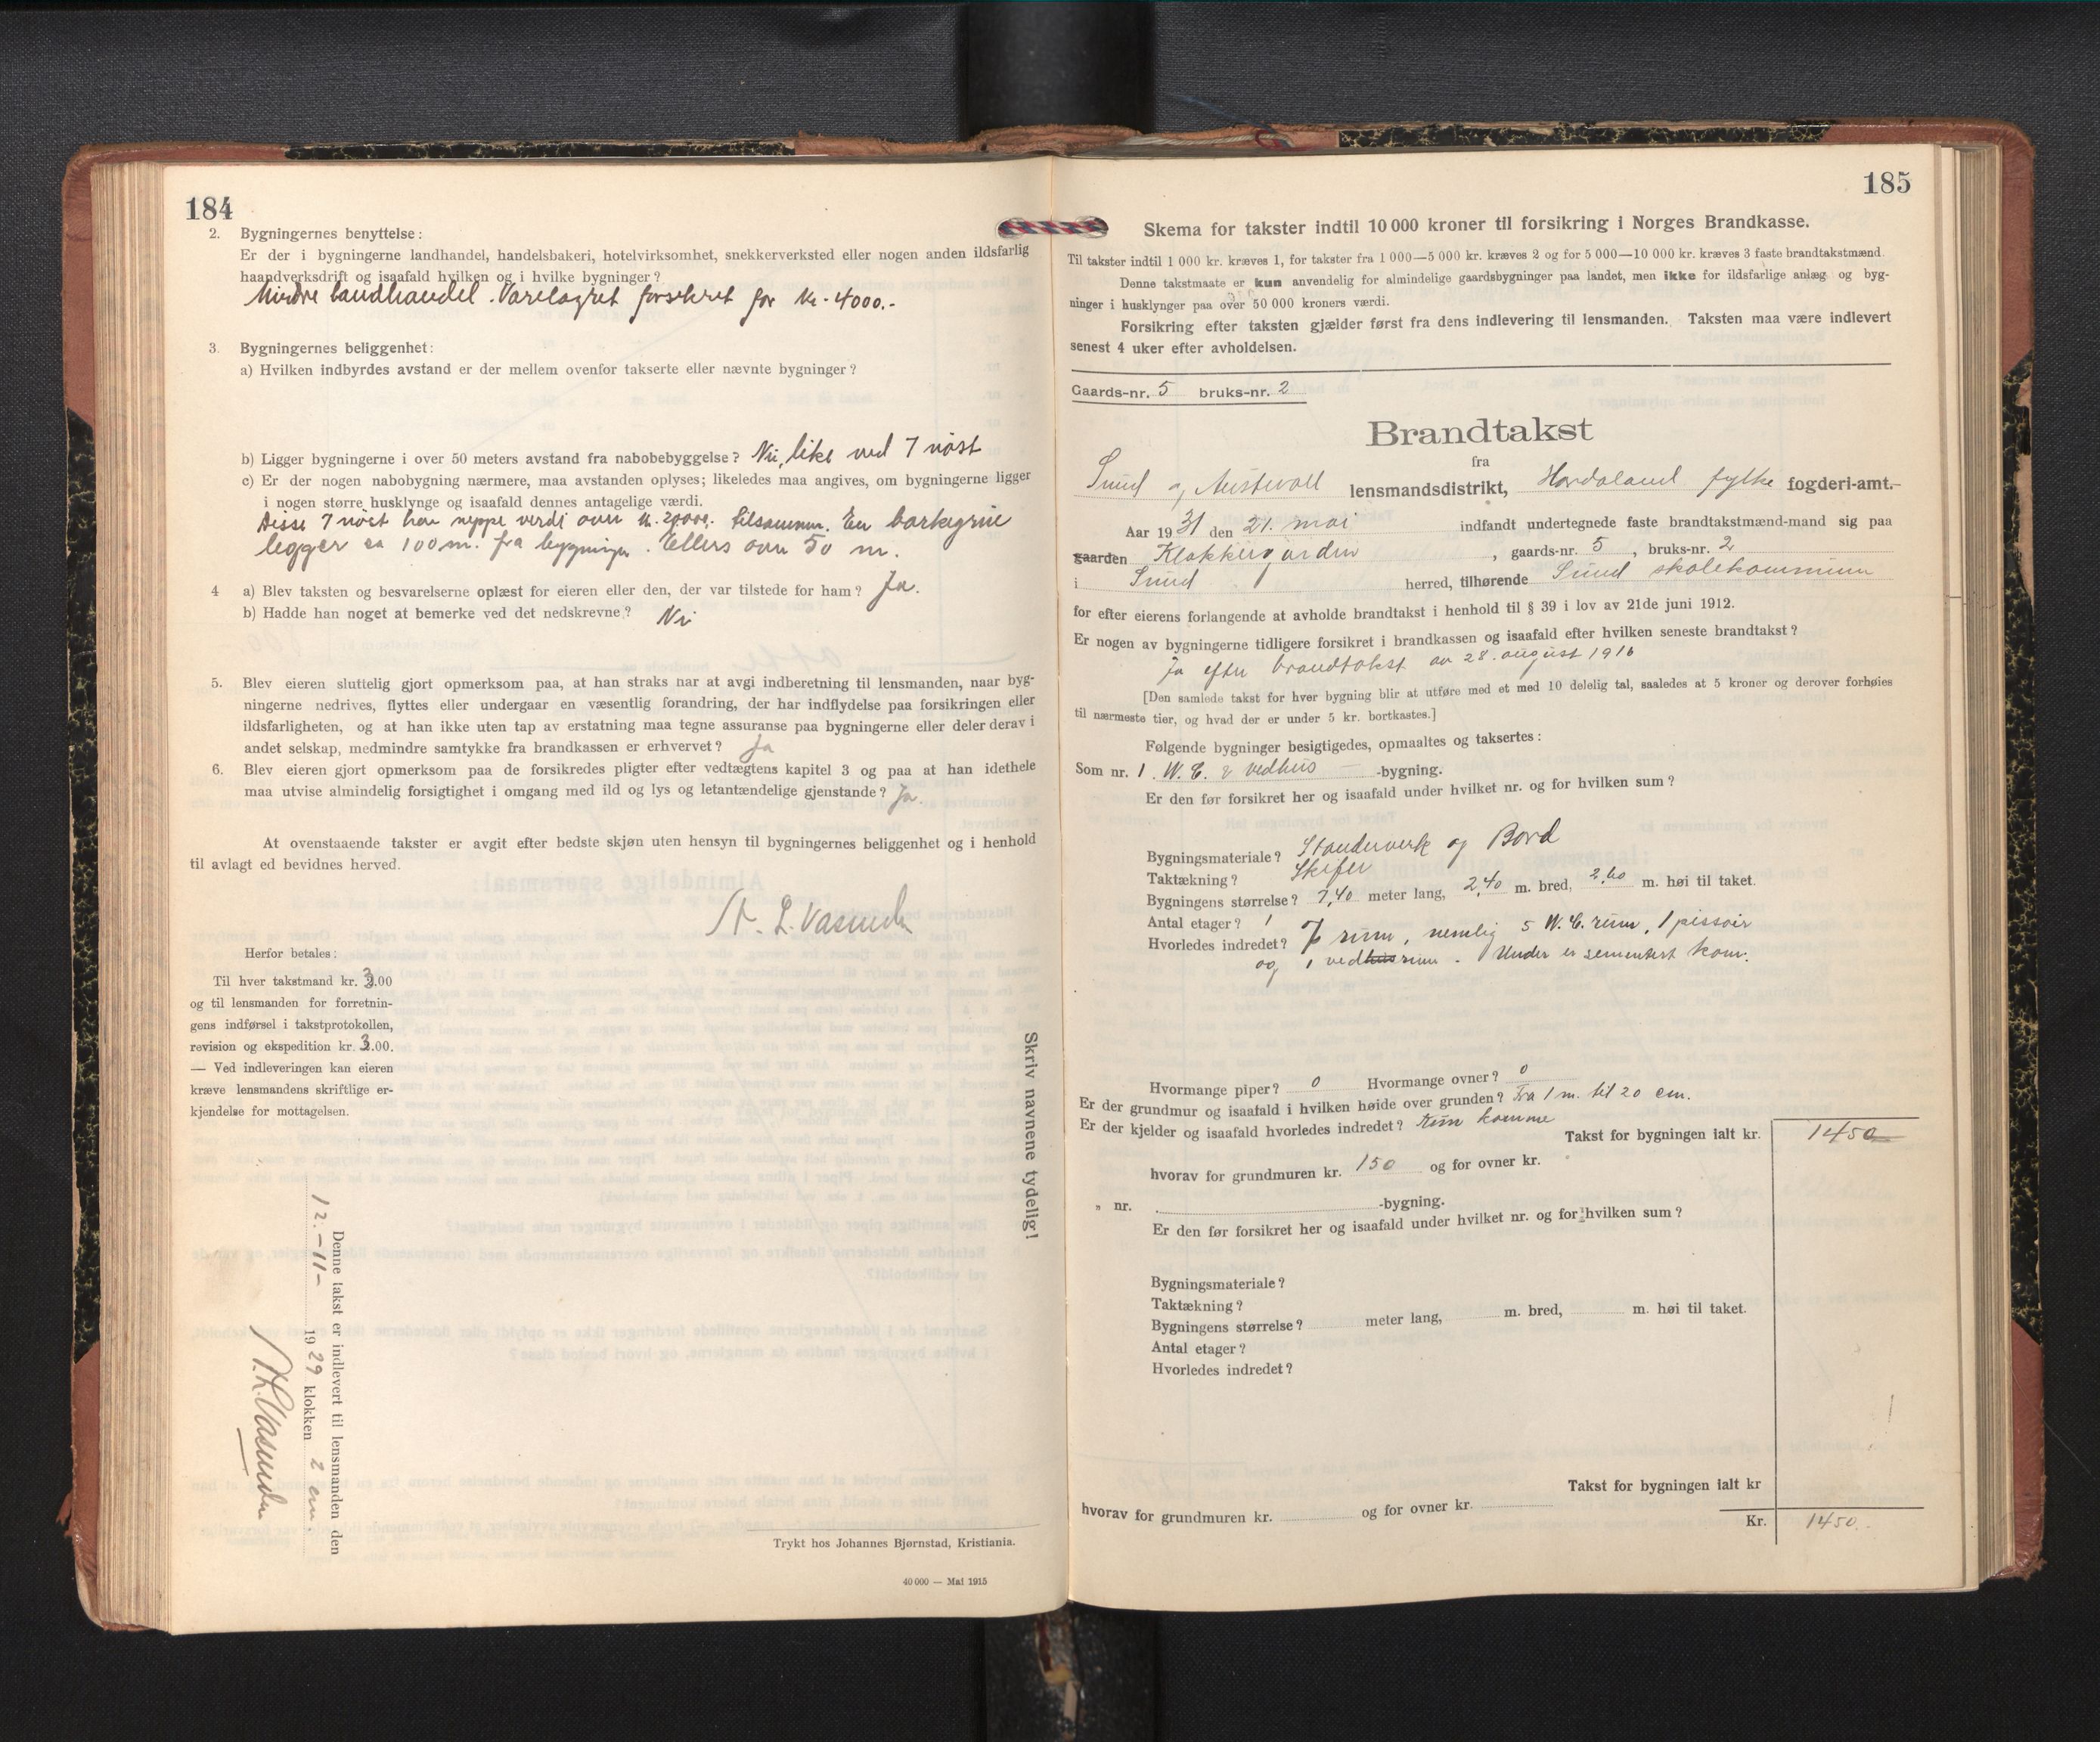 184
2. Bygningernes benyttelse:
Er der i bygningerne landhandel, handelsbakeri, hotelvirksomhet, snekkerverksted eller nogen anden ildsfarlig
haandverksdrift og isaafald hvilken og i hvilke bygninger?
Mindre landhandel. Varelagret forsikret for kr. 4000.-
3. Bygningernes beliggenhet:
a) Hvilken indbyrdes avstand er der mellem ovenfor takserte eller nævnte bygninger?
b) Ligger bygningerne i over 50 meters avstand fra nabobebyggelse? Nei, like ved 7 nøst
c) Er der nogen nabobygning nærmere, maa avstanden oplyses; likeledes maa angives, om bygningerne ligger
i nogen større husklynge og isaafald dennes antagelige værdi.
Disse 7 nøst har neppe verdi over tilsammen. En
legger ca 100 m. fra bygningen. Ellers over 50 m.
4 a) Blev taksten og besvarelserne oplæst for eieren eller den, der var tilstede for ham? Ja.
b) Hadde han noget at bemerke ved det nedskrevne? Nei
5. Blev eieren sluttelig gjort opmerksom paa, at han straks nar at avgi indberetning til lensmanden, naar byg-
ningerne nedrives, flyttes eller undergaar en væsentlig forandring, der har indflydelse paa forsikringen eller
ildsfarligheten, og at han ikke uten tap av erstatning maa tegne assuranse paa bygningerne eller deler derav i
andet selskap, medmindre samtykke fra brandkassen er erhvervet? Ja
6. Blev eieren gjort opmerksom paa de forsikredes pligter efter vedtægtens kapitel 3 og paa at han idethele
maa utvise almindelig forsigtighet i omgang med ild og lys og letantændelige gjenstande? Ja.
At ovenstaaende takster er avgit efter bedste skjøn uten hensyn til bygningernes beliggenhet og i henhold
til avlagt ed bevidnes herved.
Herfor betales:
Til hver takstmand kr. 3.00
og til lensmanden for forretnin-
gens indførsel i takstprotokollen,
revision og ekspedition kr. 3.00.
— Ved indleveringen kan eieren
kræve lensmandens skriftlige er-
kjendelse for mottagelsen.
Skriv navnene tydelig!
Denne takst er indlevert til lensmanden den
12.-11- 1929 klokken 2 em
Trykt hos Johannes Bjørnstad, Kristiania.
40 000 — Mai 1915
185
Skema for takster indtil 10 000 kroner til forsikring i Norges Brandkasse.
Til takster indtil 1 000 kr. kræves 1, for takster fra 1 000—5 000 kr. kræves 2 og for 5 000—10 000 kr. kræves 3 faste brandtakstmænd.
Denne takstmaate er kun anvendelig for almindelige gaardsbygninger paa landet, men ikke for ildsfarlige anlæg og byg-
ninger i husklynger paa over 50 000 kroners værdi.
Forsikring efter taksten gjælder først fra dens indlevering til lensmanden. Taksten maa være indlevert
senest 4 uker efter avholdelsen.
Gaards-nr. 5 bruks-nr. 2
Brandtakst
fra
Sund og Austevoll lensmandsdistrikt, Hordaland fylke fogderi-amt.
Aar 1931 den 21. mai indfandt undertegnede faste brandtakstmænd-mand sig paa
gaarden Klokkergarden, gaards-nr. 5, bruks-nr. 2
i Sund herred, tilhørende Sund skolekommune
for efter eierens forlangende at avholde brandtakst i henhold til § 39 i lov av 21de juni 1912.
Er nogen av bygningerne tidligere forsikret i brandkassen og isaafald efter hvilken seneste brandtakst?
Ja efter brandtakst av 28. august 1916
[Den samlede takst for hver bygning blir at utføre med et med 10 delelig tal, saaledes at 5 kroner og derover forhøies
til nærmeste tier, og hvad der er under 5 kr. bortkastes.]
Følgende bygninger besigtigedes, opmaaltes og taksertes:
Som nr. 1. W. C. & vedhus -bygning.
Er den før forsikret her og isaafald under hvilket nr. og for hvilken sum?
Bygningsmateriale? Standerverk og Bord
Taktækning? Skifer
Bygningens størrelse? 7,40 meter lang, 2,40 m. bred, 2,60 m. høi til taket.
Antal etager? 1
Hvorledes indredet? 7 rum, nemlig 5 W. C. rum, 1 pissoir
og 1 vedhusrum. Under er sementert kom.
Hvormange piper? 0 Hvormange ovner? 0
Er der grundmur og isaafald i hvilken høide over grunden? Fra 1 m. til 20 cm.
Er der kjelder og isaafald hvorledes indredet? komme
Takst for bygningen ialt kr. 1450
hvorav for grundmuren kr. 150 og for ovner kr.
„ nr. -bygning.
Er den før forsikret her og isaafald under hvilket nr. og for hvilken sum?
Bygningsmateriale?
Taktækning?
Bygningens størrelse? meter lang, m. bred, m. høi til taket.
Antal etager?
Hvorledes indredet?
Takst for bygningen ialt kr
hvorav for grundmuren kr. og for ovner kr.
Kr. 1450.